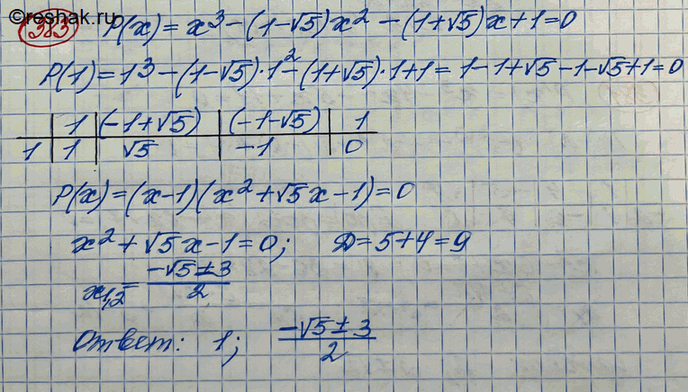 ©reshak.ru
383 P(x) = x³ - (1-√5)x² - (1+√5)x + 1 = 0
P(1) = 1³ - (1-√5)·1² - (1+√5)·1 + 1 = 1 - 1 + √5 - 1 - √5 + 1 = 0
| 1 | (-1+√5) | (-1-√5) | 1
1 | 1 | √5 | -1 | 0
P(x) = (x-1)(x² + √5x - 1) = 0
x² + √5x - 1 = 0; D = 5 + 4 = 9
x1,2 = (-√5 ± 3)/2
Ответ: 1; (-√5 ± 3)/2